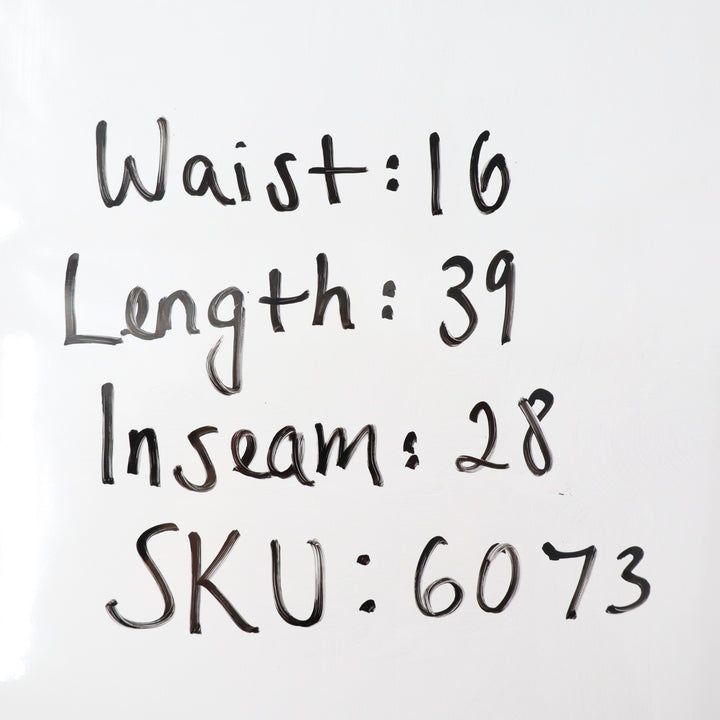 Waist: 16
Length: 39
Inseam: 28
SKU: 6073